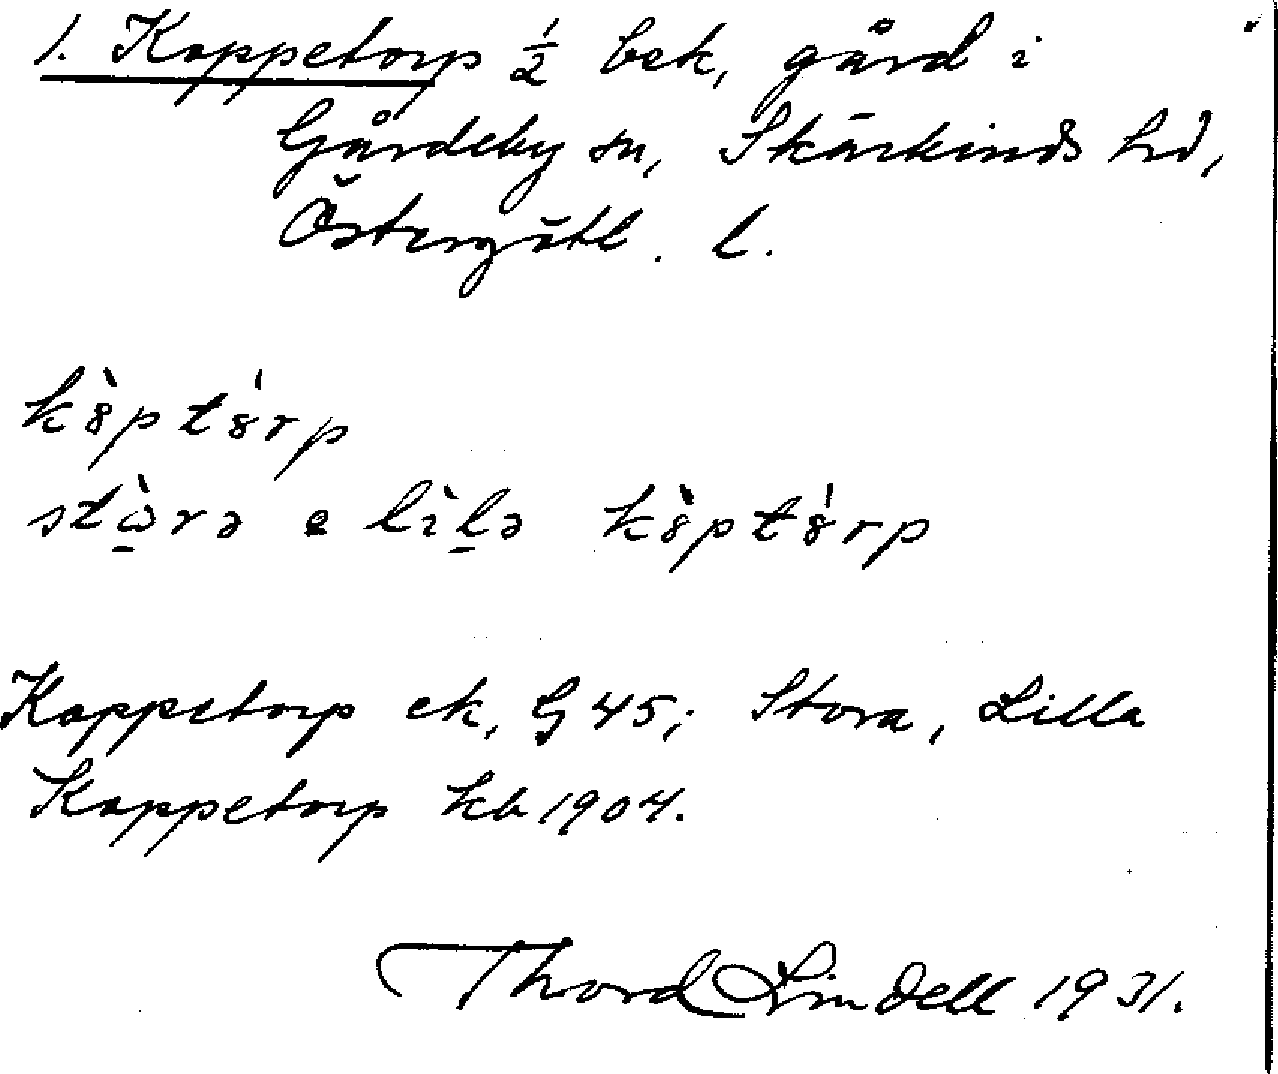 1. Koppetorp ½ bek, gård i
Gårdeby sn, Skärkinds hd,
Östergötl. l.
kò̀ptórp
stὼ̱rə ε lìḻə kòptórp
Koppetorp ek, G 45; Stora, Lilla
Koppetorp kb 1904.
Thord Lindell 1931.